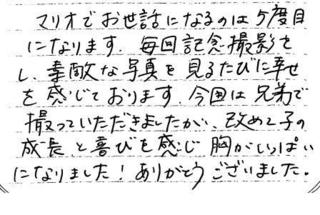 マリオでお世話になるのは5度目
になります。毎回記念撮影を
し、素敵な写真を見るたびに幸せ
を感じております。今回は兄弟で
撮っていただきましたが、改めて子の
成長と喜びを感じ胸がいっぱい
になりました！ありがとうございました。